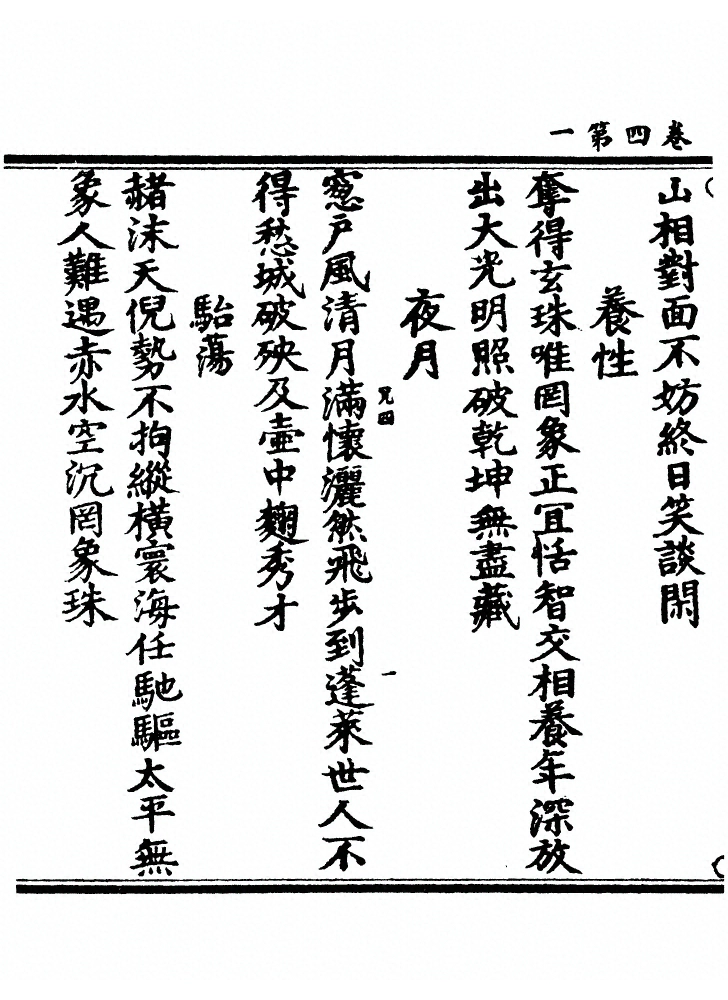 卷四第一
山相對面不妨終日笑談閑
養性
奪得玄珠唯罔象正冝恬智交相養年深放
出大光明照破乾坤無盡藏
夜月
窓戸風清月滿懷灑然飛步到蓬萊世人不
得愁城破殃及壷中麹秀才
兄四
一
駘蕩
赭沫天倪勢不拘縱横寰海任馳驅太平無
象人難遇赤水空沉罔象珠